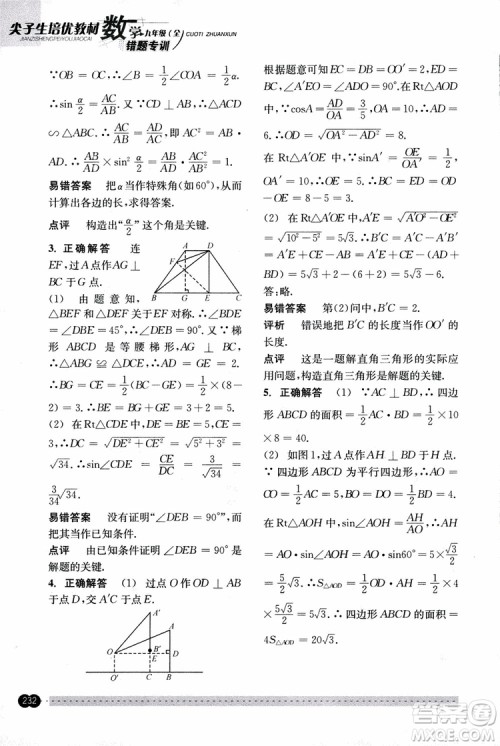 尖子生培优教材
JIANZISHENGPEIYOUJIAOCAI
数学
九年级(全)
错题专训
CUOTI ZHUANXUN
∵OB = OC, ∴∠BOE = α/2.
∴ sin α/2 = AC/AB. 又∵△ACD
∽△ABC, ∴ AC/AB = AD/AC, 即 AC² =
AB/AD. ∴ AB/AD × sin² α/2 = AB/AD × AC²/AB² = 1.
易错答案 把α当作特殊角(如60°),从而
计算出各边的长,求得答案.
点评 构造出“α/2”这个角是关键.
3. 正确解答 连
EF,过A点作AG⊥
BC于G.
(1) 由题意知,
△BEF和△DEF关于EF对称,
∴∠BEF = ∠DEF = 45°, ∴∠DEB = 90°. 又∵梯
形ABCD是等腰梯形,
∴△ABG≌△DCE. ∴AG = DE, AD =
GE. ∴BG = GE = CE = 1/2(BC - AD) = 1/2 × (8 -
2) = 3.
(2) 在Rt△CDE中, DE = BE = BC -
CE = 5. ∴DC = √DE² + CE² = √5² + 3² =
√34. ∴ sin∠CDE = CE/DC = 3/√34 =
3/34 √34.
易错答案 没有证明“∠DEB = 90°”,而
把其当作已知条件.
点评 由已知条件证明“∠DEB = 90°”是
解题的关键.
4. 正确解答 (1) 过点O作OD⊥AB
于点D,交A'C于点E.
A'
A
O
B'
E
D
O'
C
B
根据题意可知EC = DB = OO' = 2,
ED = BC, ∴∠A'EO = ∠ADO = 90°. 在
Rt△AOD中, ∵cosA = AD/OA = 3/5, OA = 10, ∴AD =
6. ∴OD = √OA² - AD² = 8. 在
Rt△A'OE中, ∵sinA' = OE/OA' = 1/2,
OA' = 10, ∴OE = 5. ∴BC = ED = OD -
OE = 8 - 5 = 3.
(2) 在Rt△A'OE中, A'E = √A'O² - OE² =
√10² - 5² = 5√3. ∴B'C = A'C - A'B' =
A'E + CE - AB = A'E + CE - (AD +
BD) = 5√3 + 2 - (6 + 2) = 5√3 - 6.
答:略.
易错答案 第(2)问中,B'C = 2.
评析 错误地把B'C的长度当作OO'的
长度.
点评 这是一题解直角三角形的实际应
用问题,解直角三角形是解题的关键.
5. 正确解答 (1) ∵AC⊥BD, ∴四边
形ABCD的面积 = 1/2 AC·BD = 1/2 × 10 ×
8 = 40.
(2) 如图,过A点作AH⊥BD于H点.
∵四边形ABCD为平行四边形, ∴AO =
CO = 1/2 AC = 5, BO = DO = 1/2 BD = 4. 在
Rt△AOH中, ∵sin∠AOH = AH/AO, ∴
AH = AO·sin∠AOH = AO·sin60° = 5 ×
√3/2 = 5/2 √3. ∴S△AOD = 1/2 OD·AH = 1/2 × 4 ×
5/2 √3 = 5√3. ∴四边形ABCD的面积 =
4S△AOD = 20√3.
232